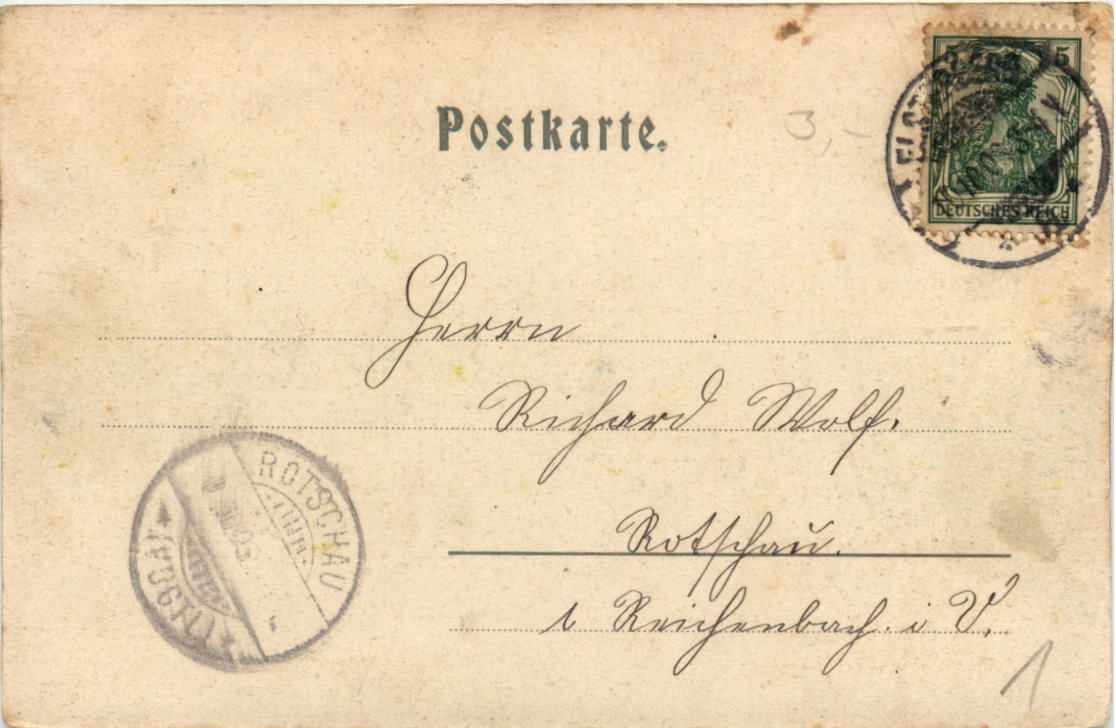 Postkarte.
3,-
5 5
DEUTSCHES REICH
Herrn
Richard Wolf.
Rotschau.
b Reichenbach i V.
ROTSCHAU
(VOGTL.)
1